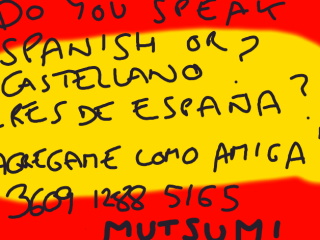 DO YOU SPEAK
SPANISH OR ?
CASTELLANO .
ERES DE ESPAÑA ?
AGREGAME COMO AMIGA
3609 1288 5165
MUTSUMI